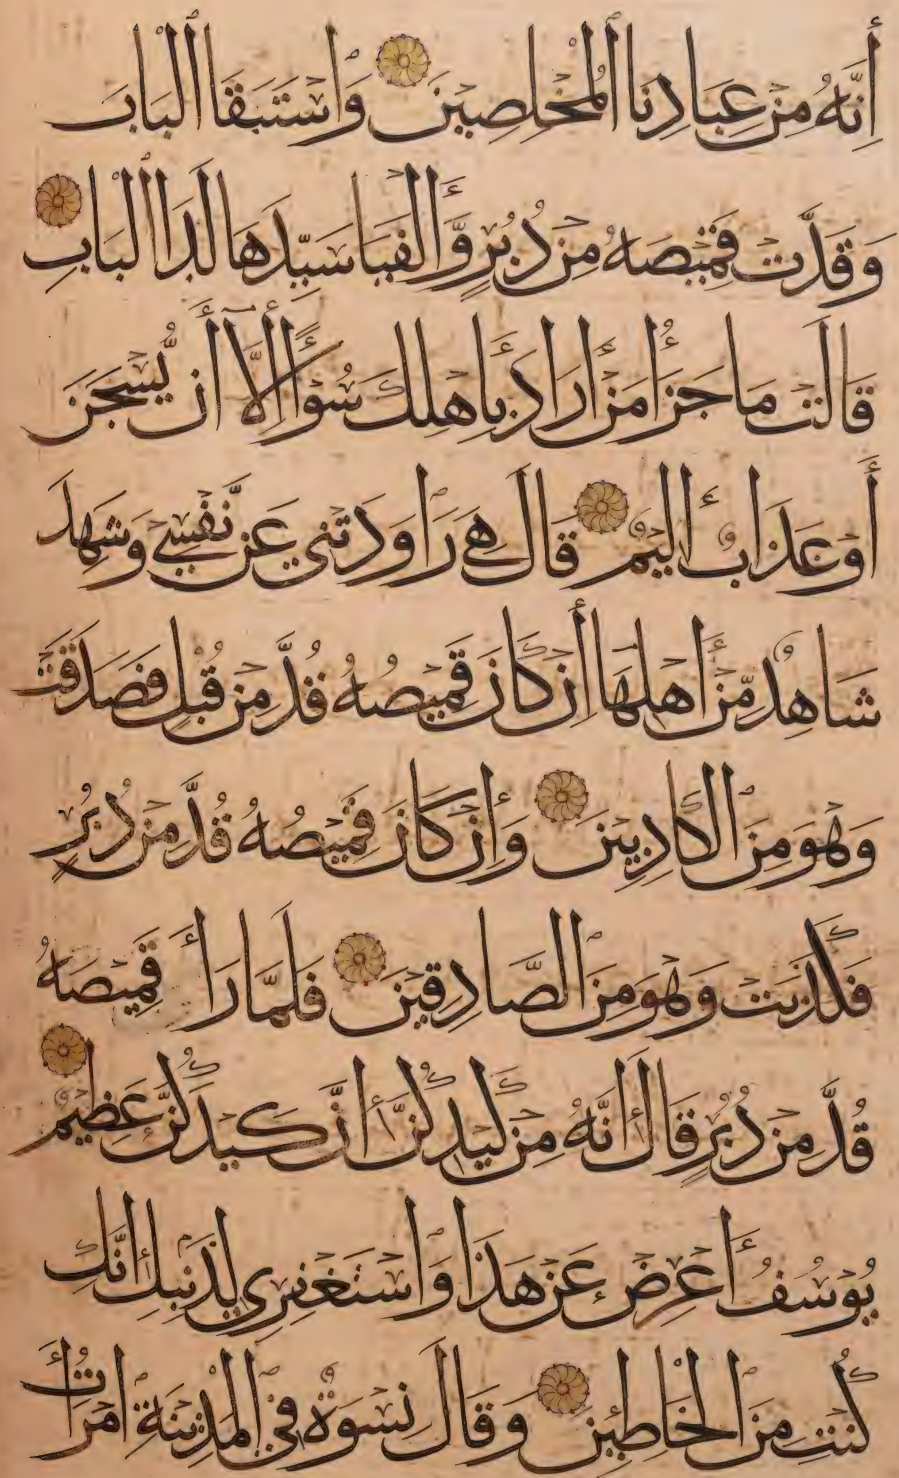 إِنَّهُ مِنْ عِبَادِنَا الْمُخْلَصِينَ وَاسْتَبَقَا الْبَابَ
وَقَدَّتْ قَمِيصَهُ مِنْ دُبُرٍ وَّأَلْفَيَا سَيِّدَهَا لَدَا الْبَابِ
قَالَتْ مَا جَزَاءُ مَنْ أَرَادَ بِأَهْلِكَ سُوْءًا إِلَّا أَنْ يُّسْجَنَ
أَوْ عَذَابٌ أَلِيمٌ قَالَ هِيَ رَاوَدَتْنِي عَنْ نَّفْسِي وَشَهِدَ
شَاهِدٌ مِّنْ أَهْلِهَا إِنْ كَانَ قَمِيصُهُ قُدَّ مِنْ قُبُلٍ فَصَدَقَتْ
وَهُوَ مِنَ الْكَاذِبِينَ وَإِنْ كَانَ قَمِيصُهُ قُدَّ مِنْ دُبُرٍ
فَكَذَبَتْ وَهُوَ مِنَ الصَّادِقِينَ فَلَمَّا رَأَ قَمِيصَهُ
قُدَّ مِنْ دُبُرٍ قَالَ إِنَّهُ مِنْ كَيْدِكُنَّ إِنَّ كَيْدَكُنَّ عَظِيمٌ
يُوْسُفُ أَعْرِضْ عَنْ هَذَا وَاسْتَغْفِرِي لِذَنْبِكِ إِنَّكِ
كُنْتِ مِنَ الْخَاطِئِينَ وَقَالَ نِسْوَةٌ فِي الْمَدِينَةِ امْرَأَتُ